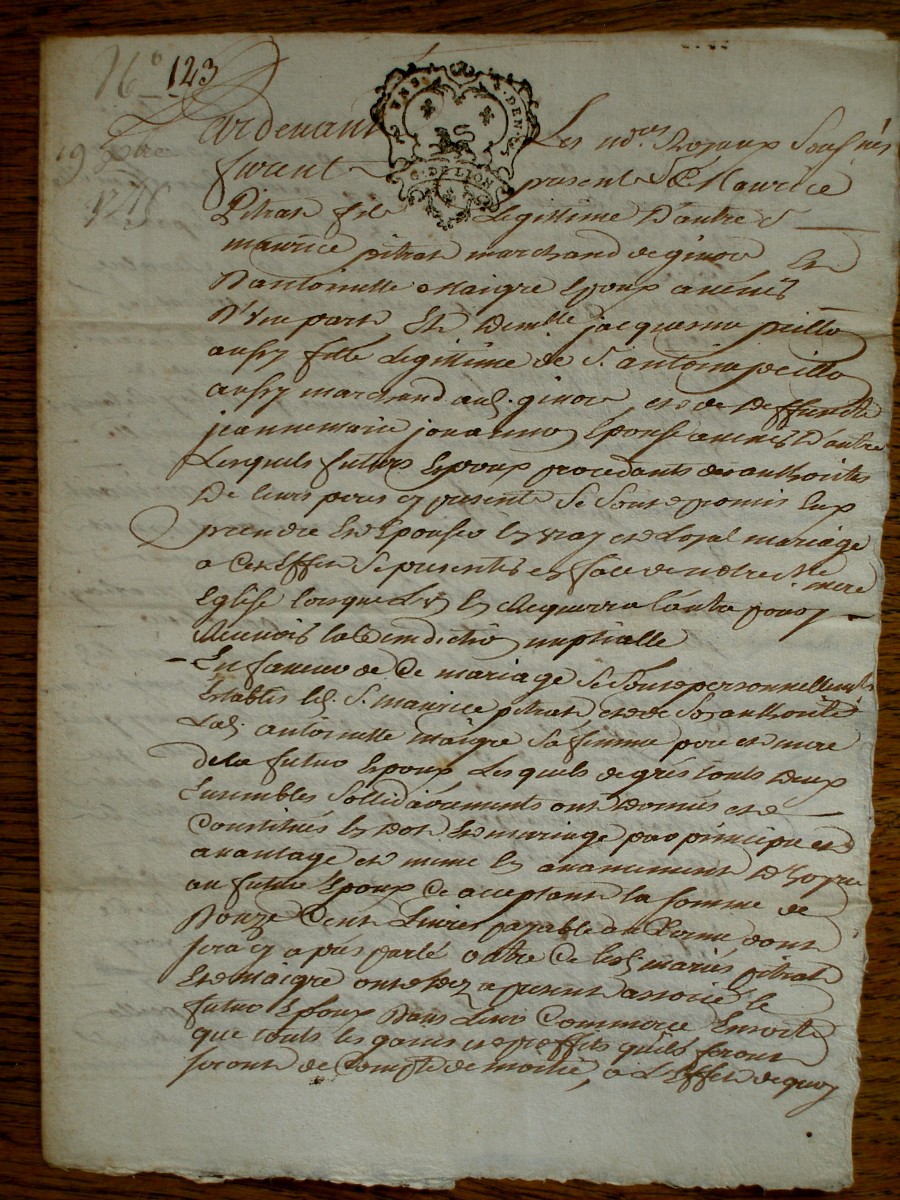 N° 123
19
Pardevant Les no.res Royaux Sousignés
furent presents Sr Maurice
Pitrat fils Legittime D'autre Sr
maurice pitrat marchand de givors Et
D'antoinette Maigre Epoux avenir
D'Une part Et Demlle jacquesme peillon
aussy fille Legittime de Sr antoine peillon
aussy marchand aud. givors et de Deffuncte
jeanne marie jouannon Epouse avenir D'autre
Lesquels futurs Epoux procedants des authorités
De leurs peres cy presents Se Sont promis Eux
prendre Et Epouser En vray et Loyal mariage
a Cet Effet Se presenter en face de notre Ste mere
Eglise lorsque L'Un En Requerra l'autre pour y
Recevoir la Benediction nuptialle
– En faveur de Ce mariage Se Sont personnellement
Etablis led. Sr. maurice pitrat et de Son authorité
Lad. antoinette maigre Sa femme pere et mere
de la futur Epoux Lesquels de grés touts Deux
Ensembles Sollidairements ont Donnés et
Constitués En Dot Et mariage par principu et
avantage et meme En avancement D'hoyrie
au futur Epoux Ce aceptant la somme de
Douze Cent Livres payable du Terme dont
sera cy apres parlé outre Ce lesd. mariés pitrat
Et Maigre ont dez a present associé le
futur Epoux Dans Leur Commerce Ensorte
que touts les gains et proffits quils feront
seront de Compte de moitié, a L'Effet de quoy